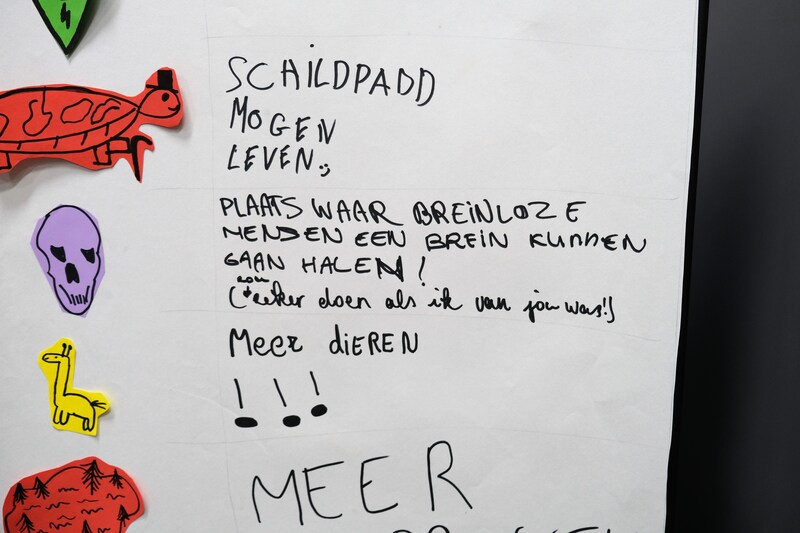 SCHILDPADD
MOGEN
LEVEN
PLAATS WAAR BREINLOZE
MENSEN EEN BREIN KUNNEN
GAAN HALEN!
zou
(zeker doen als ik van jou was!)
Meer diEREN
! ! !
MEER